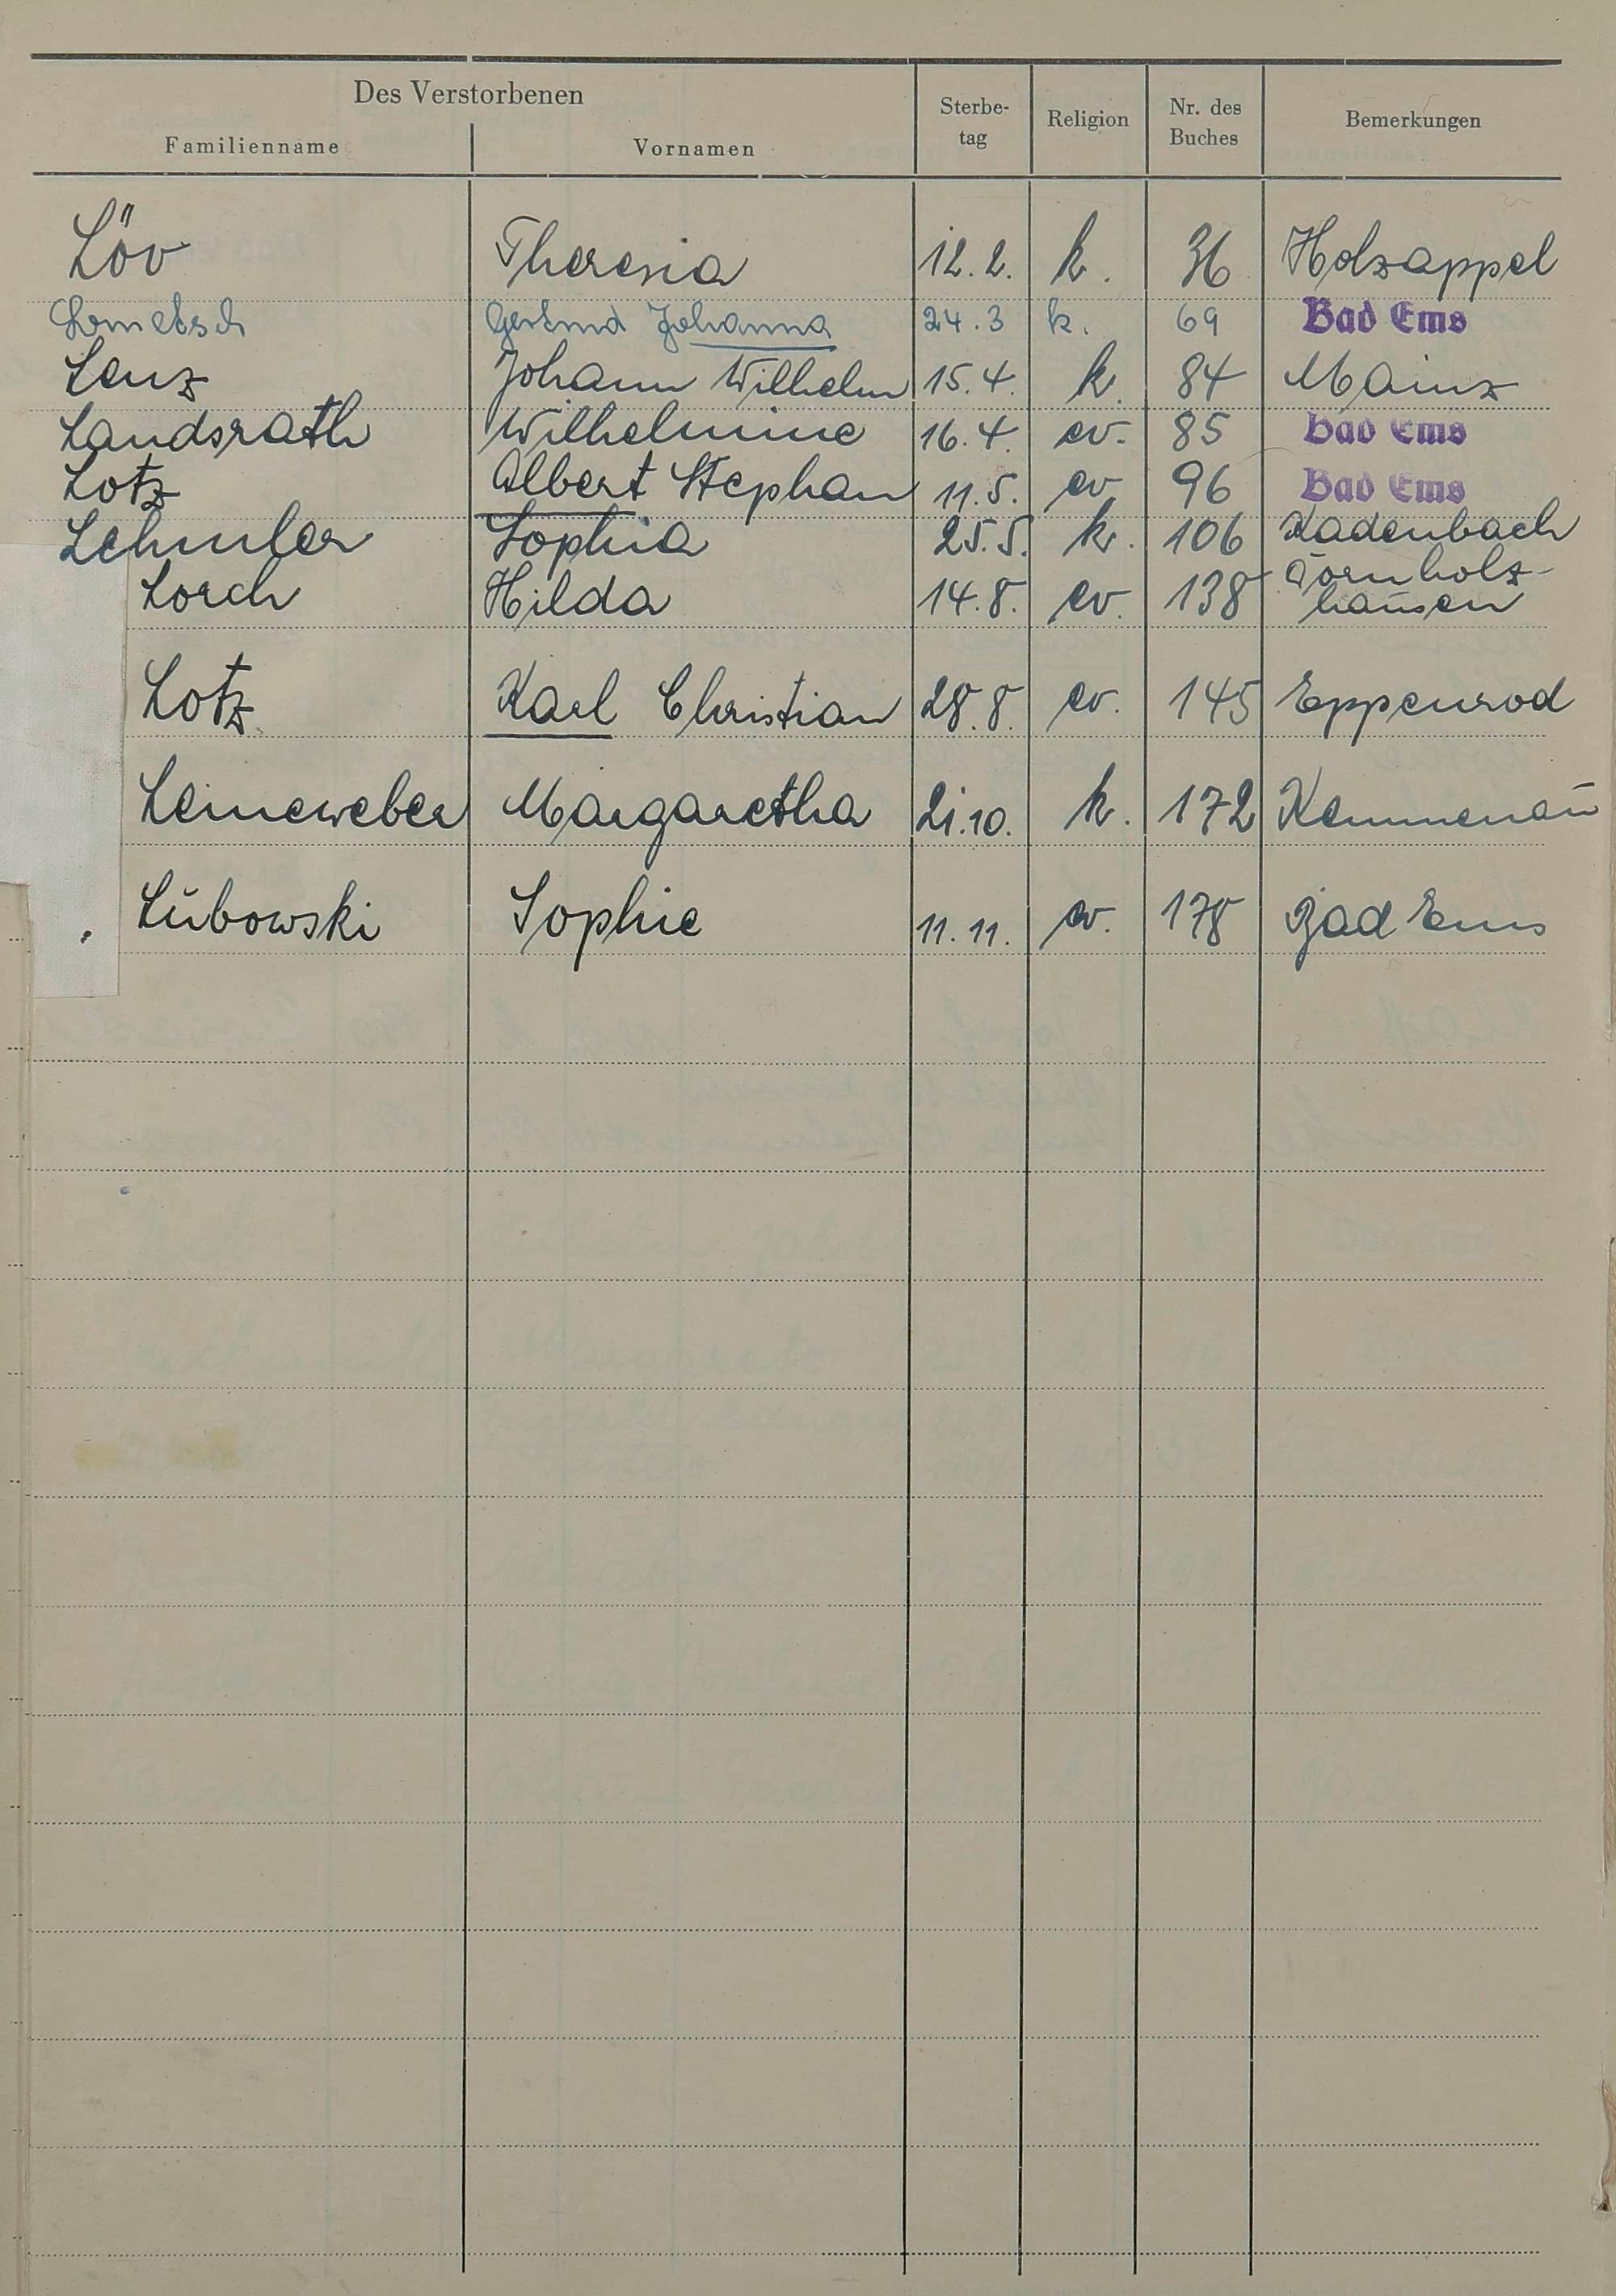 Des Verstorbenen
Familienname Vornamen Sterbe-tag Religion Nr. des Buches Bemerkungen
Löv Theresia 12.2. k. 36 Holzappel
Lometsch Gertrud Johanna 24.3 k. 69 Bad Ems
Lenz Johann Wilhelm 15.4. k. 84 Mainz
Landsrath Wilhelmine 16.4. ev. 85 Bad Ems
Lotz Albert Stephan 11.5. ev 96 Bad Ems
Lehmler Sophia 25.5. k. 106 Kadenbach
Lorch Hilda 14.8. ev. 138 Görnholz-
hausen
Lotz Karl Christian 28.8. ev. 145 Eppenrod
Leineweber Margaretha 21.10. k. 172 Kemmenau
Lubowski Sophie 11.11. ev. 178 Bad Ems